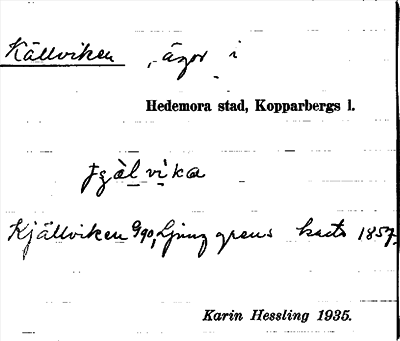 Källviken , ägor i
Hedemora stad, Kopparbergs l.
Kjällviken G90, Ljunggrens karta 1857.
Karin Hessling 1935.